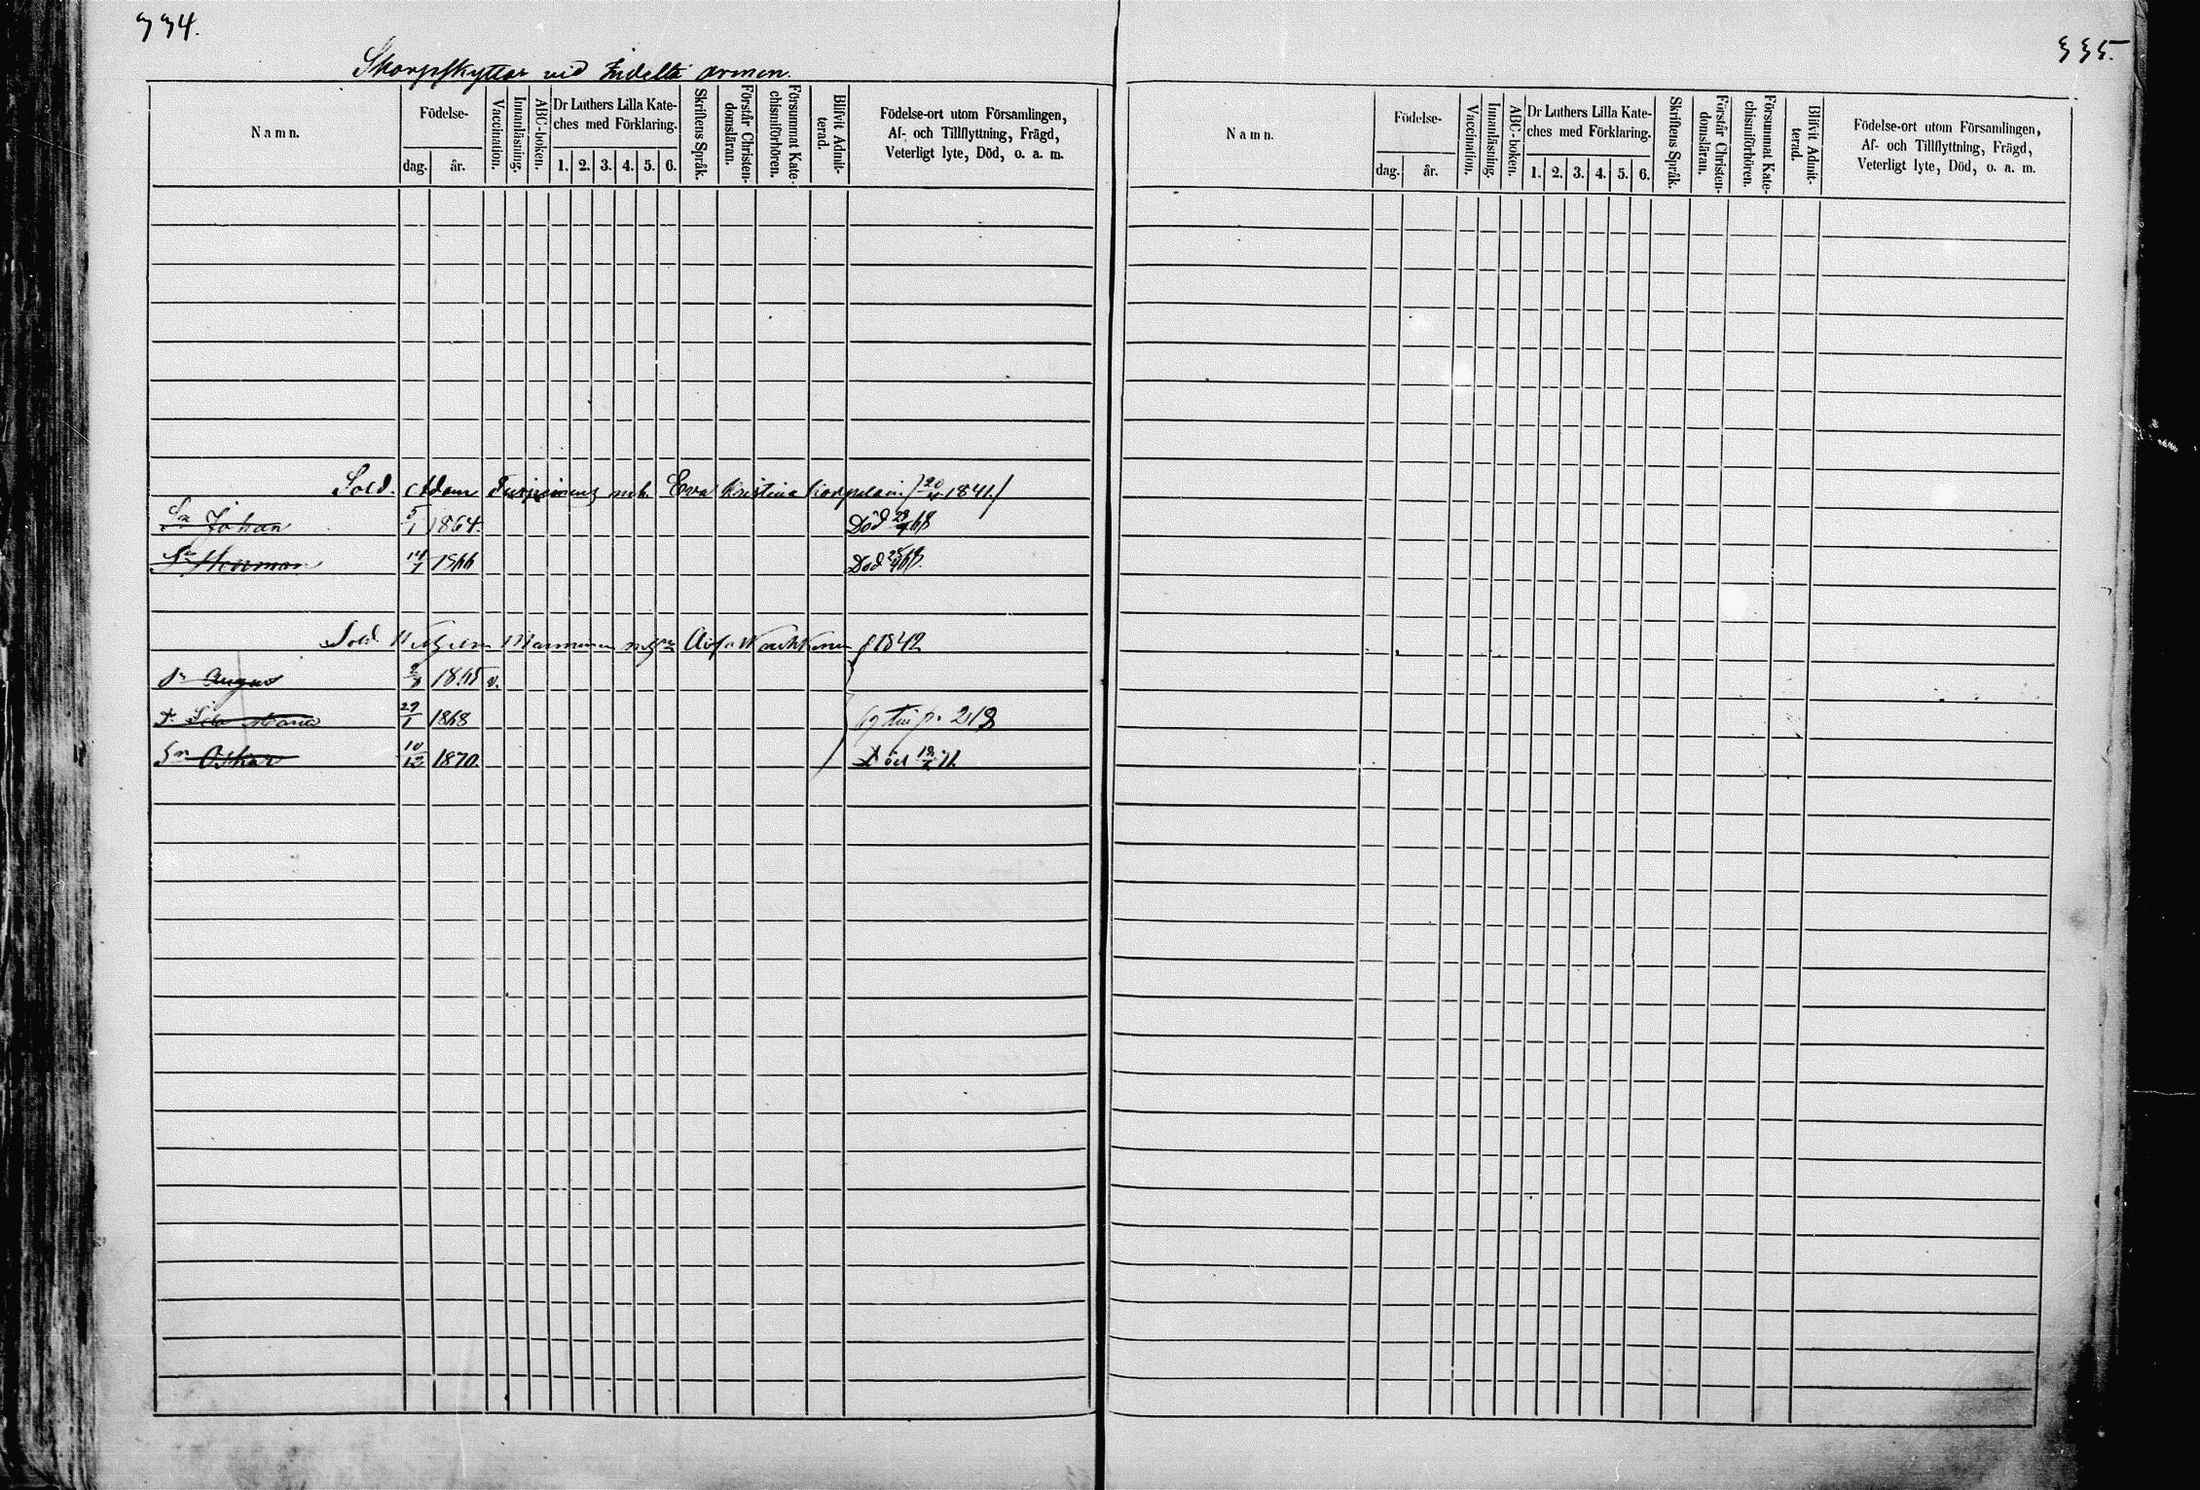 334.
335.
Skarpskyttar vid Indelta armen.
Namn.
Födelse-
dag.
år.
Vaccination.
Innanläsning.
ABC-boken.
Dr Luthers Lilla Kate-
ches med Förklaring.
1. 2. 3. 4. 5. 6.
Skriftens Språk.
Förstår Christen-
domsläran.
Försummat Kate-
chismiförhören.
Blifvit Admit-
terad.
Födelse-ort utom Församlingen,
Af- och Tillflyttning, Frägd,
Veterligt lyte, Död, o. a. m.
Sold. Adam Eva Kristina 1841
Sn Johan 5/1 1864. Död 68
Sn Herman 14/1 1866 Död 68
Sold. 1842
Sn August v.
D. Maria 29/1 1868 p. 218
Sn Oskar 10/12 1870. Död 71
Namn.
Födelse-
dag.
år.
Vaccination.
Innanläsning.
ABC-boken.
Dr Luthers Lilla Kate-
ches med Förklaring.
1. 2. 3. 4. 5. 6.
Skriftens Språk.
Förstår Christen-
domsläran.
Försummat Kate-
chismiförhören.
Blifvit Admit-
terad.
Födelse-ort utom Församlingen,
Af- och Tillflyttning, Frägd,
Veterligt lyte, Död, o. a. m.